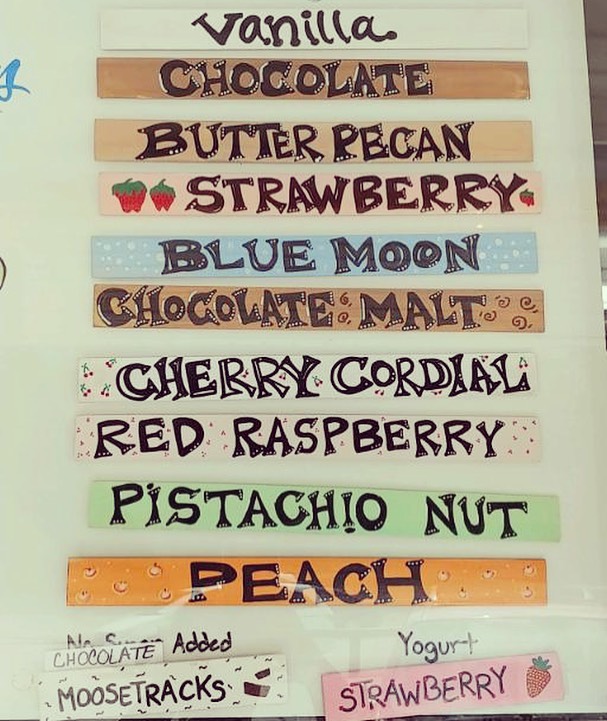 Vanilla
CHOCOLATE
BUTTER PECAN
STRAWBERRY
BLUE MOON
CHOCOLATE MALT
CHERRY CORDIAL
RED RASPBERRY
PISTACHIO NUT
PEACH
No Sugar Added
CHOCOLATE
MOOSETRACKS
Yogurt
STRAWBERRY